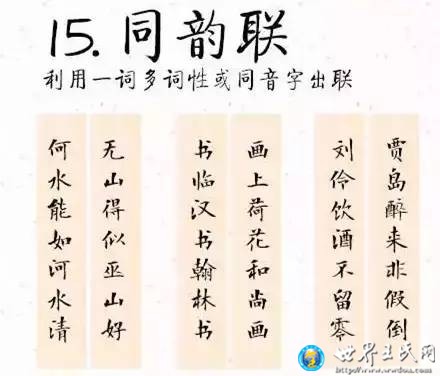 15. 同韵联
利用一词多词性或同音字出联
贾岛醉来非假倒
刘伶饮酒不留零
画上荷花和尚画
书临汉书翰林书
无山得似巫山好
何水能如河水清
世界王氏网